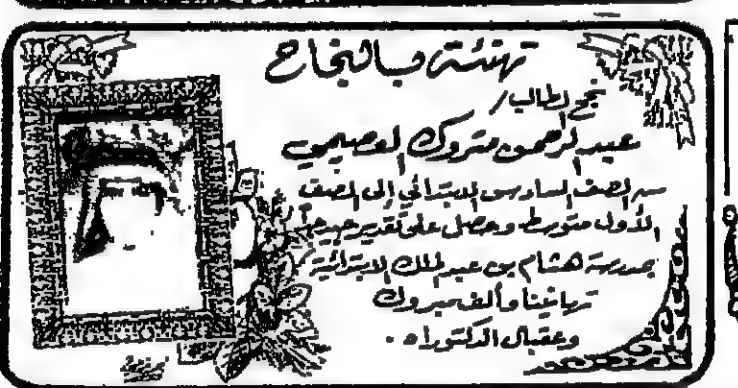 تهنئة بالنجاح
نجح الطالب/
عبدالرحمن متروك العصيمي
من الصف السادس الابتدائي إلى الصف
الأول متوسط وحصل على تقدير جيد جداً
بمدرسة هشام بن عبدالملك الابتدائية
تهانينا وألف مبروك
وعقبال الدكتوراه .